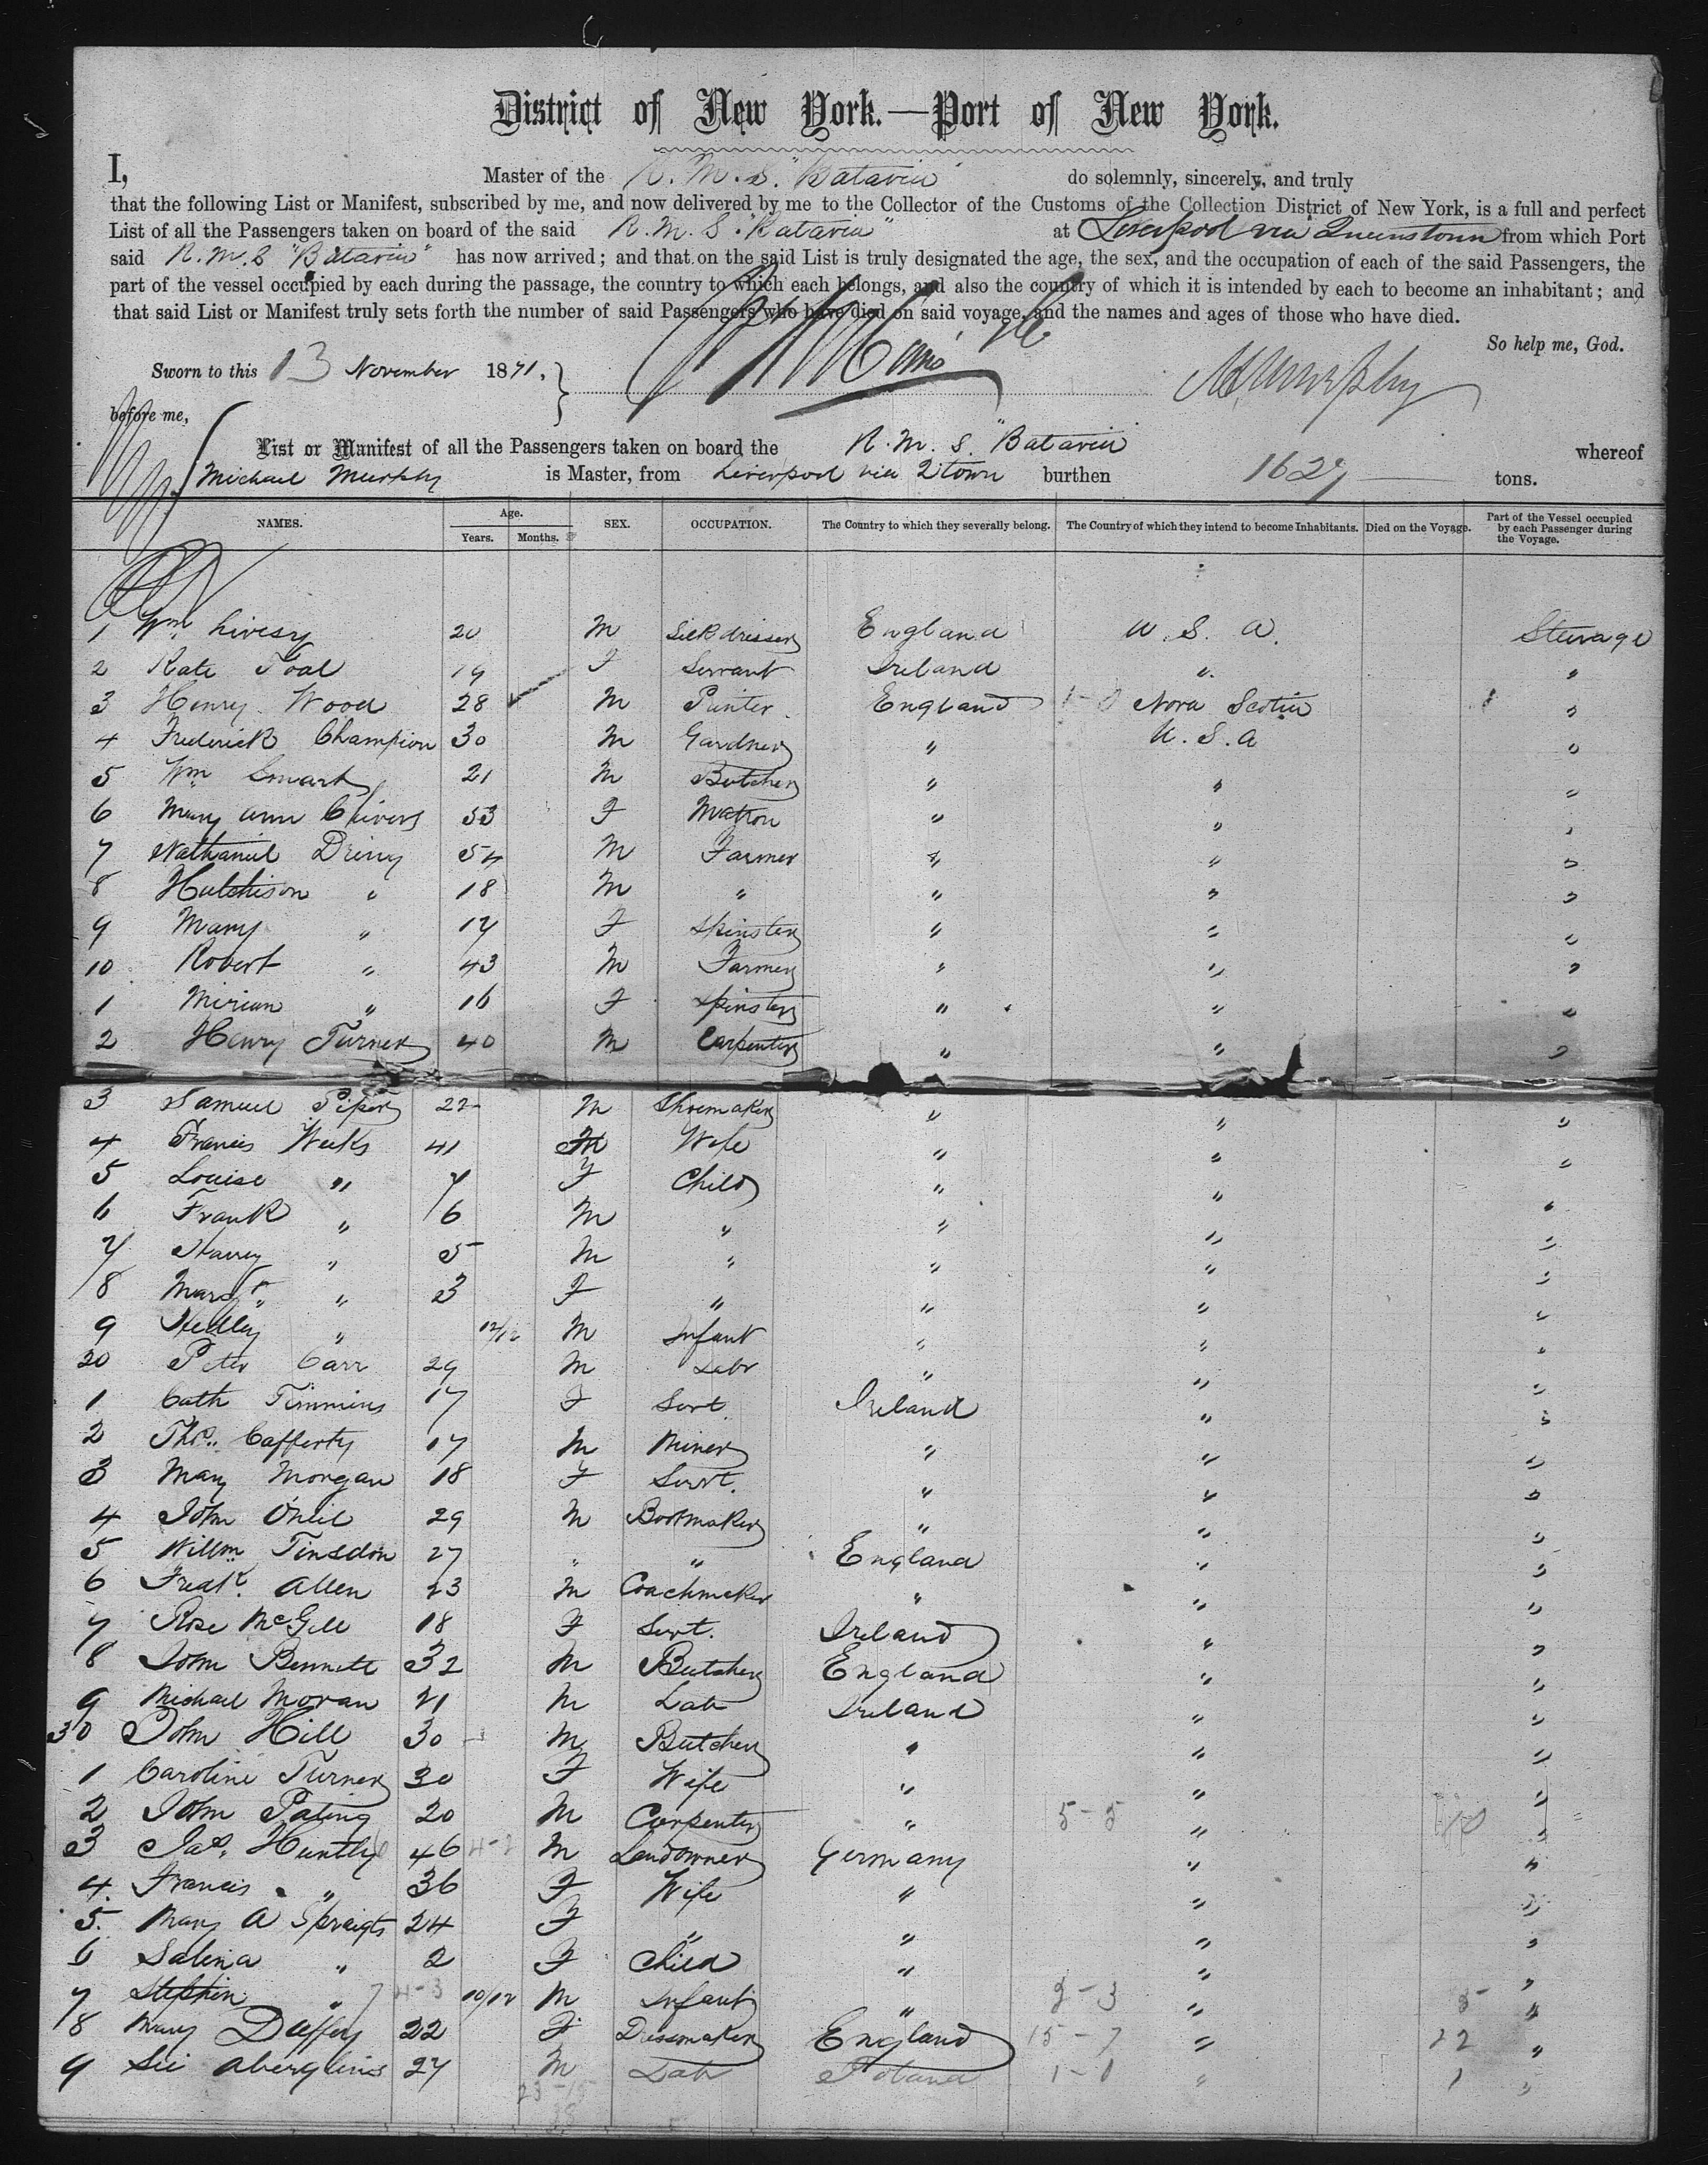 District of New York.—Port of New York.
I, Master of the R. M. S. "Batavia" do solemnly, sincerely, and truly
that the following List or Manifest, subscribed by me, and now delivered by me to the Collector of the Customs of the Collection District of New York, is a full and perfect
List of all the Passengers taken on board of the said R. M. S. "Batavia" at Liverpool via Queenstown from which Port
said R. M. S "Batavia" has now arrived; and that on the said List is truly designated the age, the sex, and the occupation of each of the said Passengers, the
part of the vessel occupied by each during the passage, the country to which each belongs, and also the country of which it is intended by each to become an inhabitant; and
that said List or Manifest truly sets forth the number of said Passengers who have died on said voyage, and the names and ages of those who have died.
So help me, God.
Sworn to this 13 November 1871,
M. Murphy
before me,
List or Manifest of all the Passengers taken on board the R. M. S. "Batavia" whereof
Michael Murphy is Master, from Liverpool via Qtown burthen 1627 tons.
NAMES. Age. Years. Months. SEX. OCCUPATION. The Country to which they severally belong. The Country of which they intend to become Inhabitants. Died on the Voyage. Part of the Vessel occupied by each Passenger during the Voyage.
1 Wm Livesy 20 M Silk dresser England U. S. A. Steerage
2 Kate Toal 19 F Servant Ireland " "
3 Henry Wood 28 M Printer England 1-0 Nova Scotia "
4 Frederick Champion 30 M Gardner " U. S. A "
5 Wm Smart 21 M Butcher " " "
6 Mary Ann Chivers 53 F Matron " " "
7 Nathaniel Dring 54 M Farmer " " "
8 Hutchison " 18 M " " " "
9 Mary " 17 F Spinster " " "
10 Robert " 43 M Farmer " " "
1 Miriam " 16 F Spinster " " "
2 Henry Turner 40 M Carpenter " " "
3 Samuel Piper 22 M Shoemaker " " "
4 Francis Weeks 41 F Wife " " "
5 Louise " 7 F Child " " "
6 Frank " 6 M " " " "
7 Harry " 5 M " " " "
8 Margt " 3 F " " " "
9 Hedley " 12/12 M Infant " " "
20 Peter Carr 29 M Labr " " "
1 Cath Timmins 17 F Servt Ireland " "
2 Thos. Cafferty 17 M Miner " " "
3 Mary Morgan 18 F Servt. " " "
4 John Oneil 29 M Bootmaker " " "
5 Willm Tinsdon 27 " " England " "
6 Fredk. Allen 23 M Coachmaker " " "
7 Rose McGill 18 F Servt. Ireland " "
8 John Bennett 32 M Butcher England " "
9 Michael Moran 21 M Lab Ireland " "
30 John Hill 30 M Butcher " " "
1 Caroline Turner 30 F Wife " " "
2 John Pating 20 M Carpenter " 5-5 " "
3 Jas. Huntly 46 M Landowner Germany " "
4 Francis " 36 F Wife " " "
5. Mary A Spraigts 24 F " " " "
6 Salina " 2 F Child " " "
7 Stephen " 4-3 10/12 M Infant " 2-3 " 5 "
8 Mary Duffy 22 F Dressmaker England 15-7 " 22 "
9 27 M Lab Poland 1-0 " 1 "